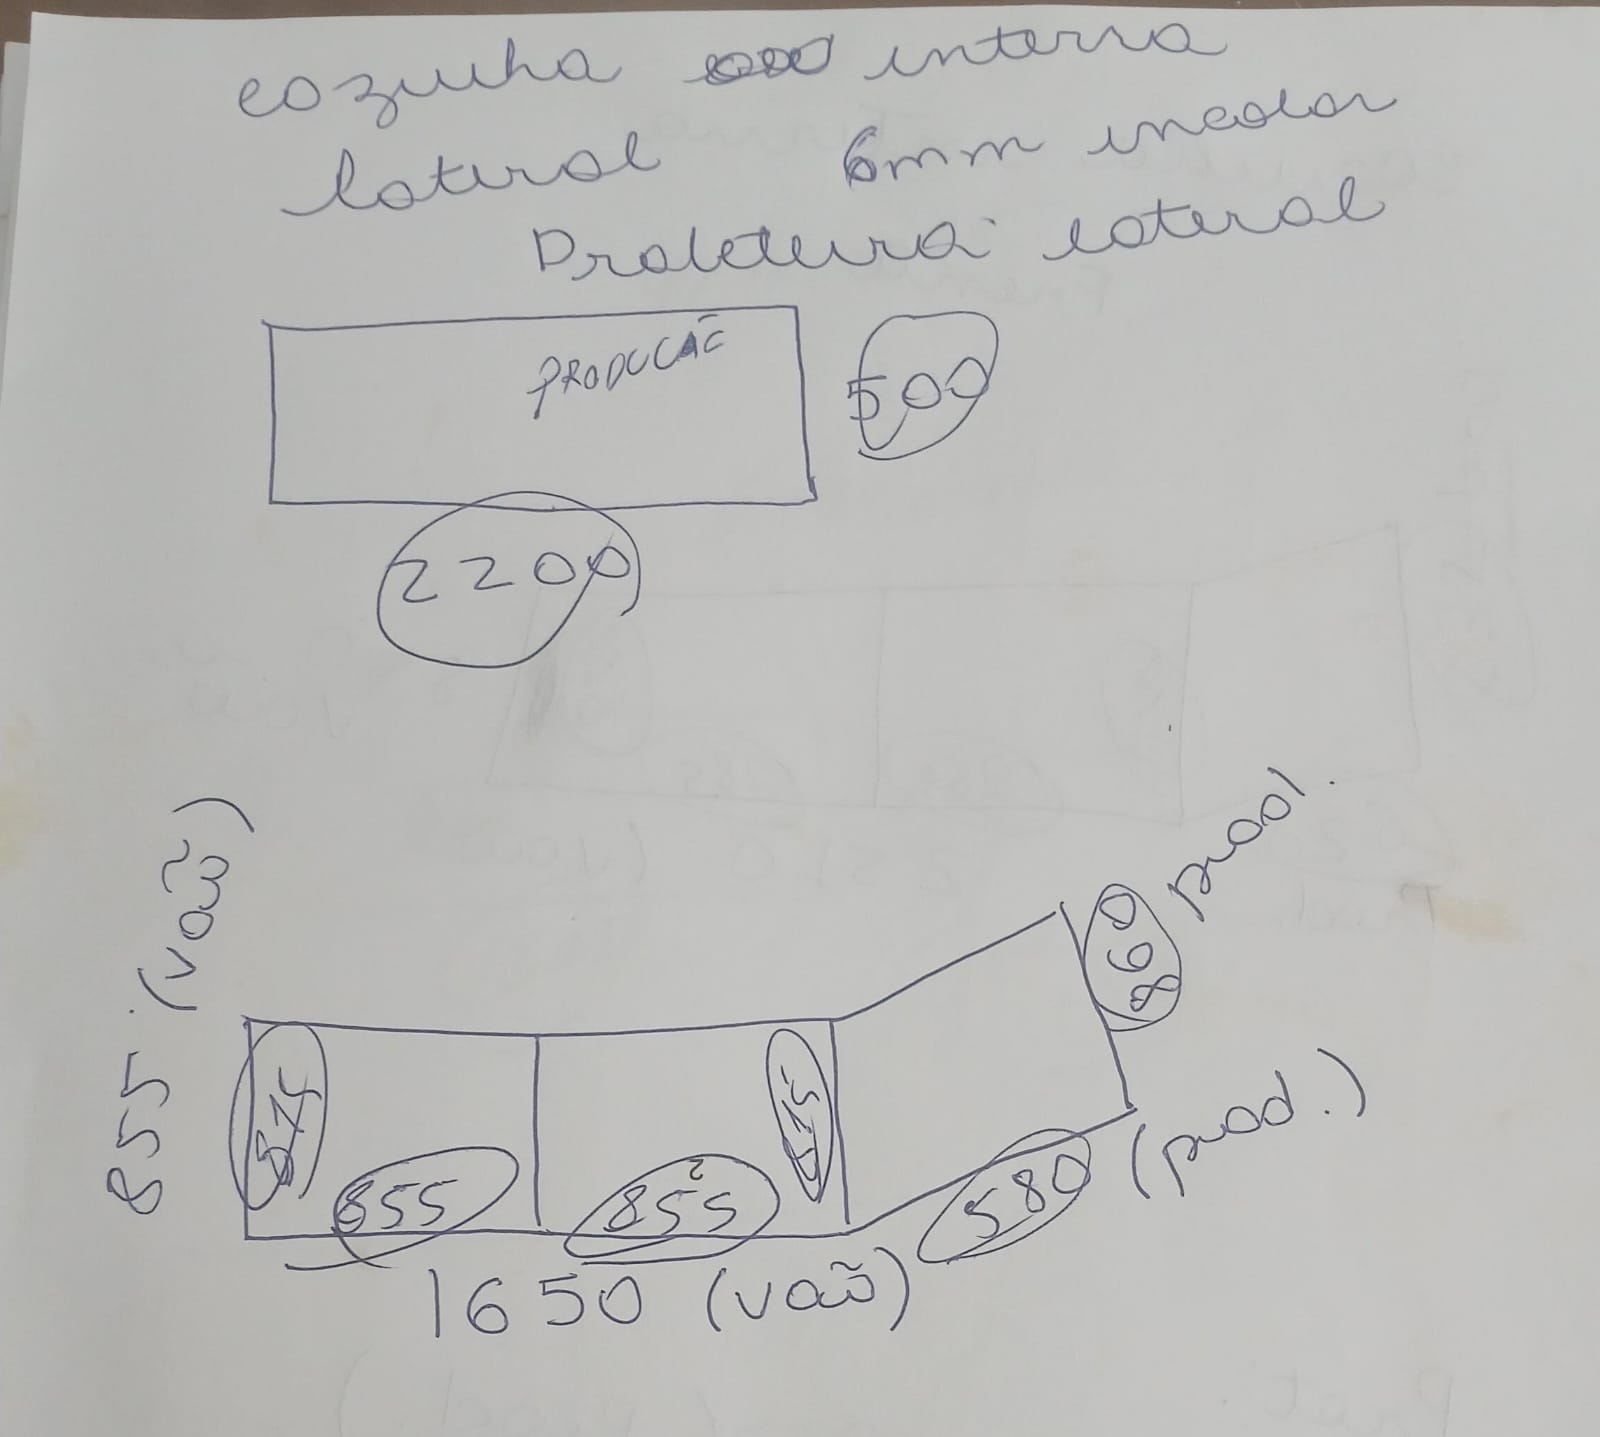 cozinha interna
lateral 6mm incolor
Prateleira lateral
PRODUCÃO
500
2200
855 (vaõ)
860 prod.
875
855
855
580 (prod.)
1650 (vaõ)